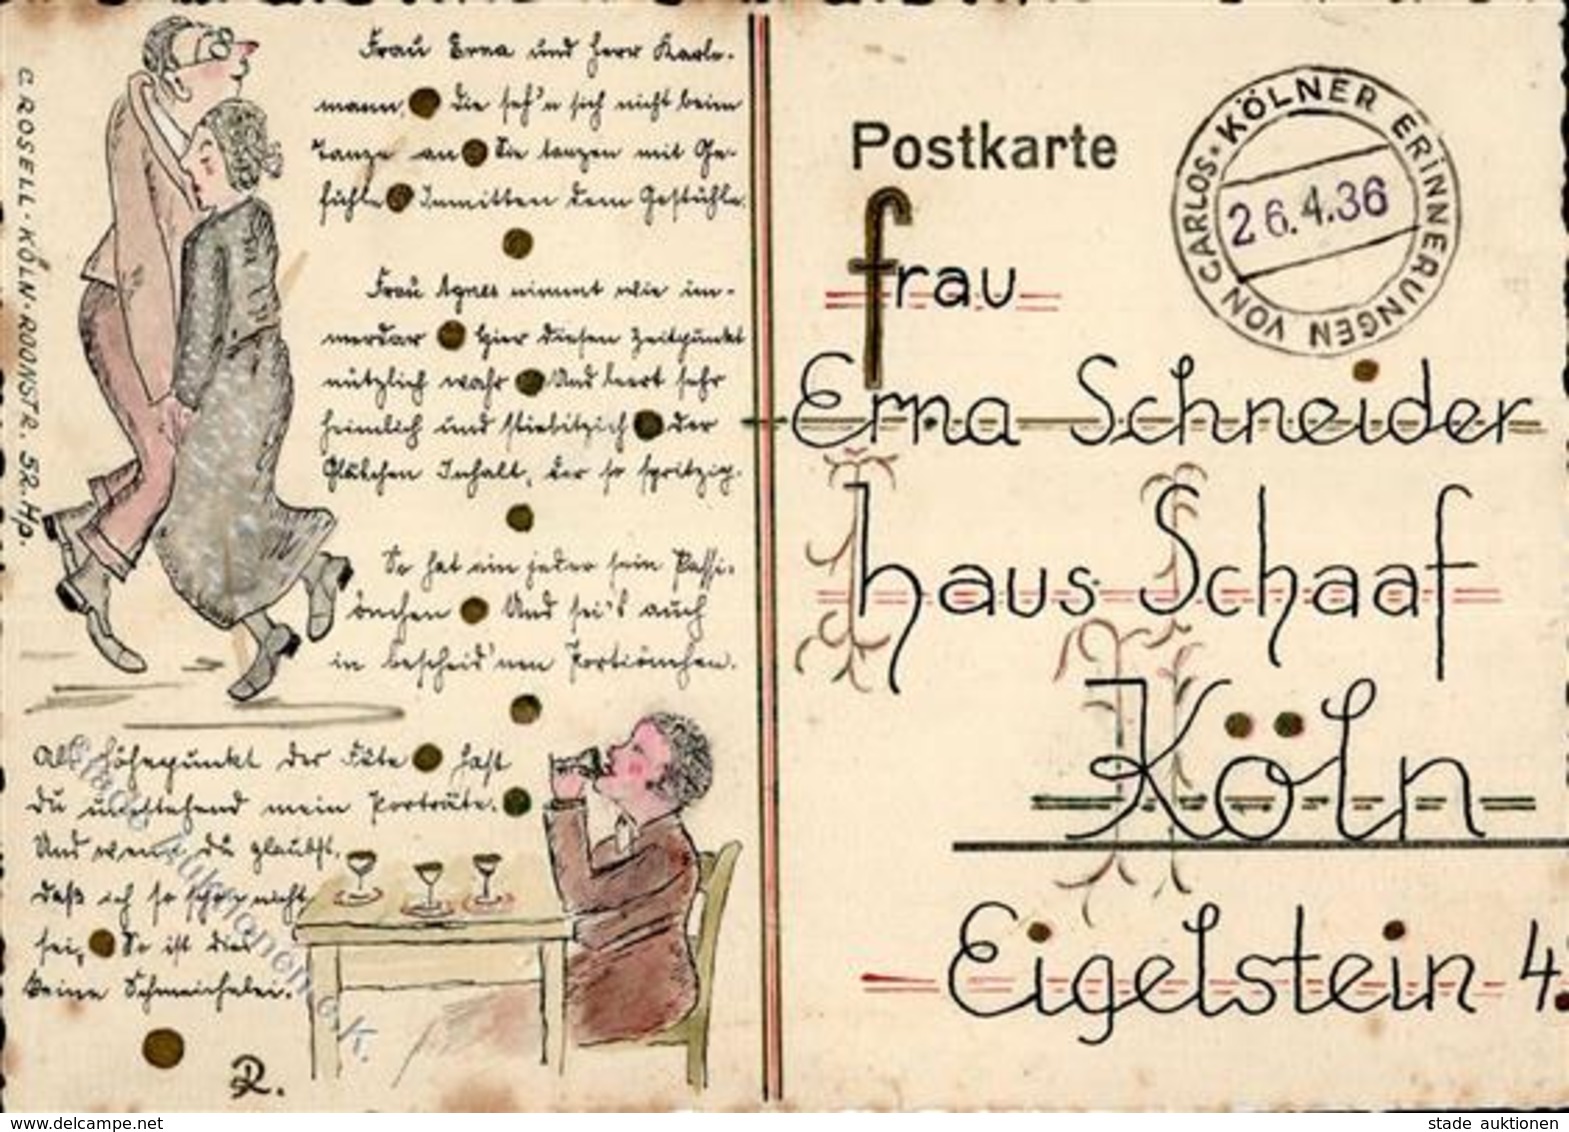 C. ROSELL-KÖLN-ROONSTR. 52.Hp.
Frau Erna und Herr Karle-
mann, die seh'n sich nicht beim
Tanze an Sie tanzen mit Ge-
fühle Inmitten dem Gestühle.
Frau Agnes nimmt wie im-
merdar Hier diesen Zeitpunkt
nützlich wahr Und leert sehr
heimlich und stiebitzich der
Gläschen Inhalt, der so spritzig.
So hat ein jeder sein Passi-
önchen Und sei's auch
in bescheid'nen Portiönchen.
Als Höhepunkt der Fäte hast
Du umstehend mein Porträte.
Und wenn du glaubst,
daß ich so schön nicht
sei, So ist dies
keine Schmeichelei.
R.
Postkarte
KÖLNER ERINNERUNGEN VON CARLOS
26.4.36
Frau
Erna Schneider
Haus Schaaf
Köln
Eigelstein 4
www.oldthing.de
stade auktionen